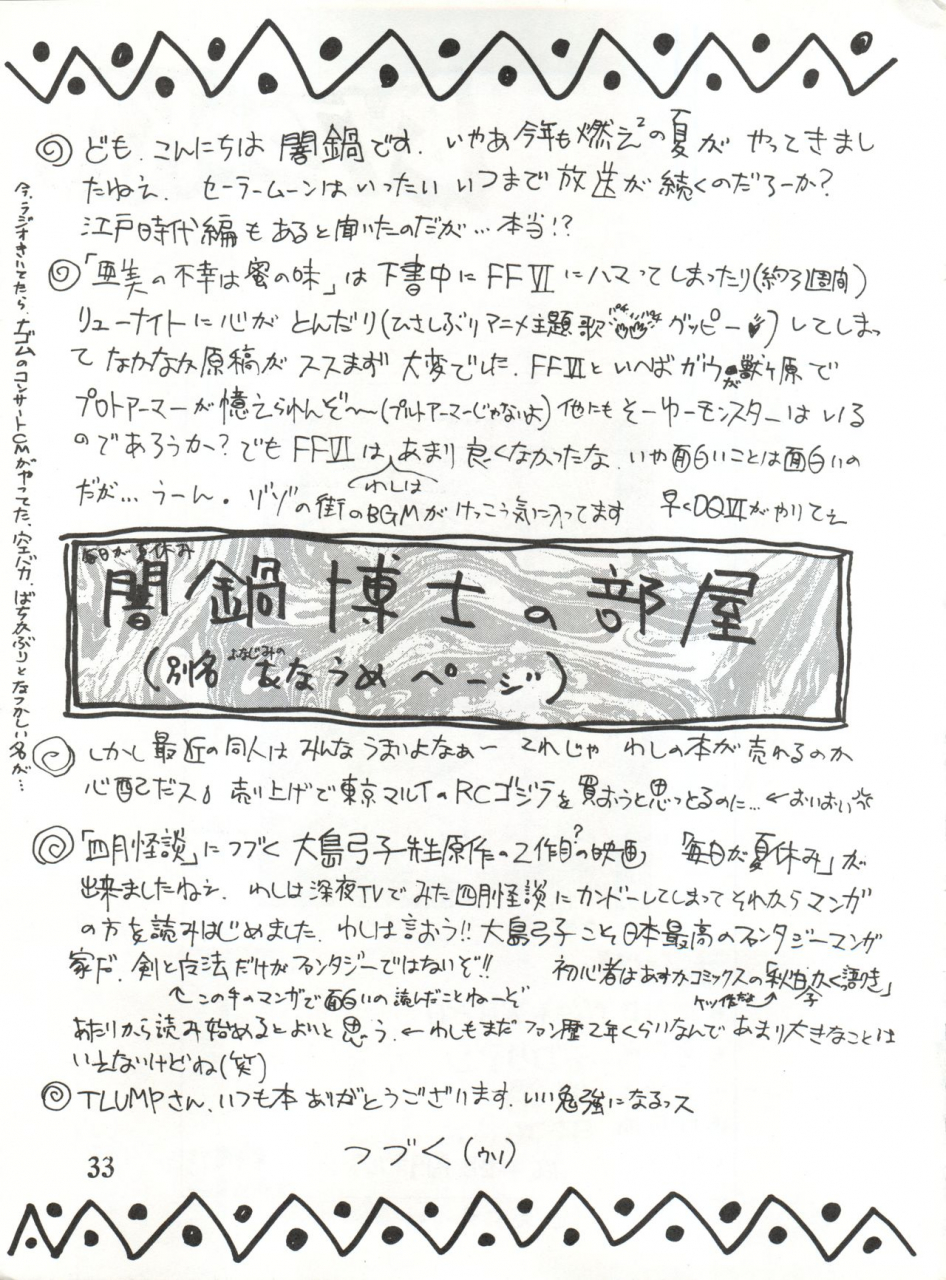 ども、こんにちは 闇鍋です。いやあ今年も燃え²の夏が やってきまし
たねえ. セーラームーンはいったい いつまで 放送が 続くのだろーか?
江戸時代編もあると聞いたのだが…本当!?
「亜美の不幸は蜜の味」は下書中に FFⅥ にハマってしまったり(約3週間)
リューナイトに心が とんだり(ひさしぶりアニメ主題歌 パチパチ グッピー)してしまっ
て なかなか原稿が ススまず 大変でした. FFⅥといへば ガウが獣ヶ原で
プロトアーマーが憶えられんぞ〜(プルトアーマーじゃないよ)他にも そーゆーモンスターはいる
のであろうか? でも FFⅥは、あまり 良くなかったな. いや面白いことは面白いの
わしは
だが…うーん。ゾゾの街のBGMが けっこう気に入ってます 早くDQⅥがやりてえ
今、ラジオきいてたら、ナゴムのコンサートCMがやってた、空バカ、ばちかぶりとなつかしい名が…
毎日が夏休み
闇鍋博士の部屋
(別名 おなじみの あなうめ ページ)
しかし最近の同人は みんな うまいよなぁ〜 これじゃ わしの本が売れるのか
心配だス。売り上げで東京マルイのRCゴジラを買おうと思っとるのに…←おいおい
「四月怪談」につづく 大島弓子先生原作の2作目?の映画 「毎日が夏休み」が
出来ましたねえ. わしは深夜TVでみた四月怪談にカンドーしてしまって それからマンガ
の方を読みはじめました. わしは言おう!! 大島弓子こそ日本最高のファンタジーマンガ
家だ. 剣と魔法だけがファンタジーではないぞ!! 初心者はあすかコミックスの「秋日子かく語りき」
↖この手のマンガで面白いの読んだことねーぞ ケッ作だよ↗
あたりから読み始めるとよいと思う. ←わしもまだファン歴2年くらいなんで あまり大きなことは
いえないけどね(笑)
TLUMPさん、いつも本 ありがとうございます. いい勉強になるっス
つづく(ウソ)
33